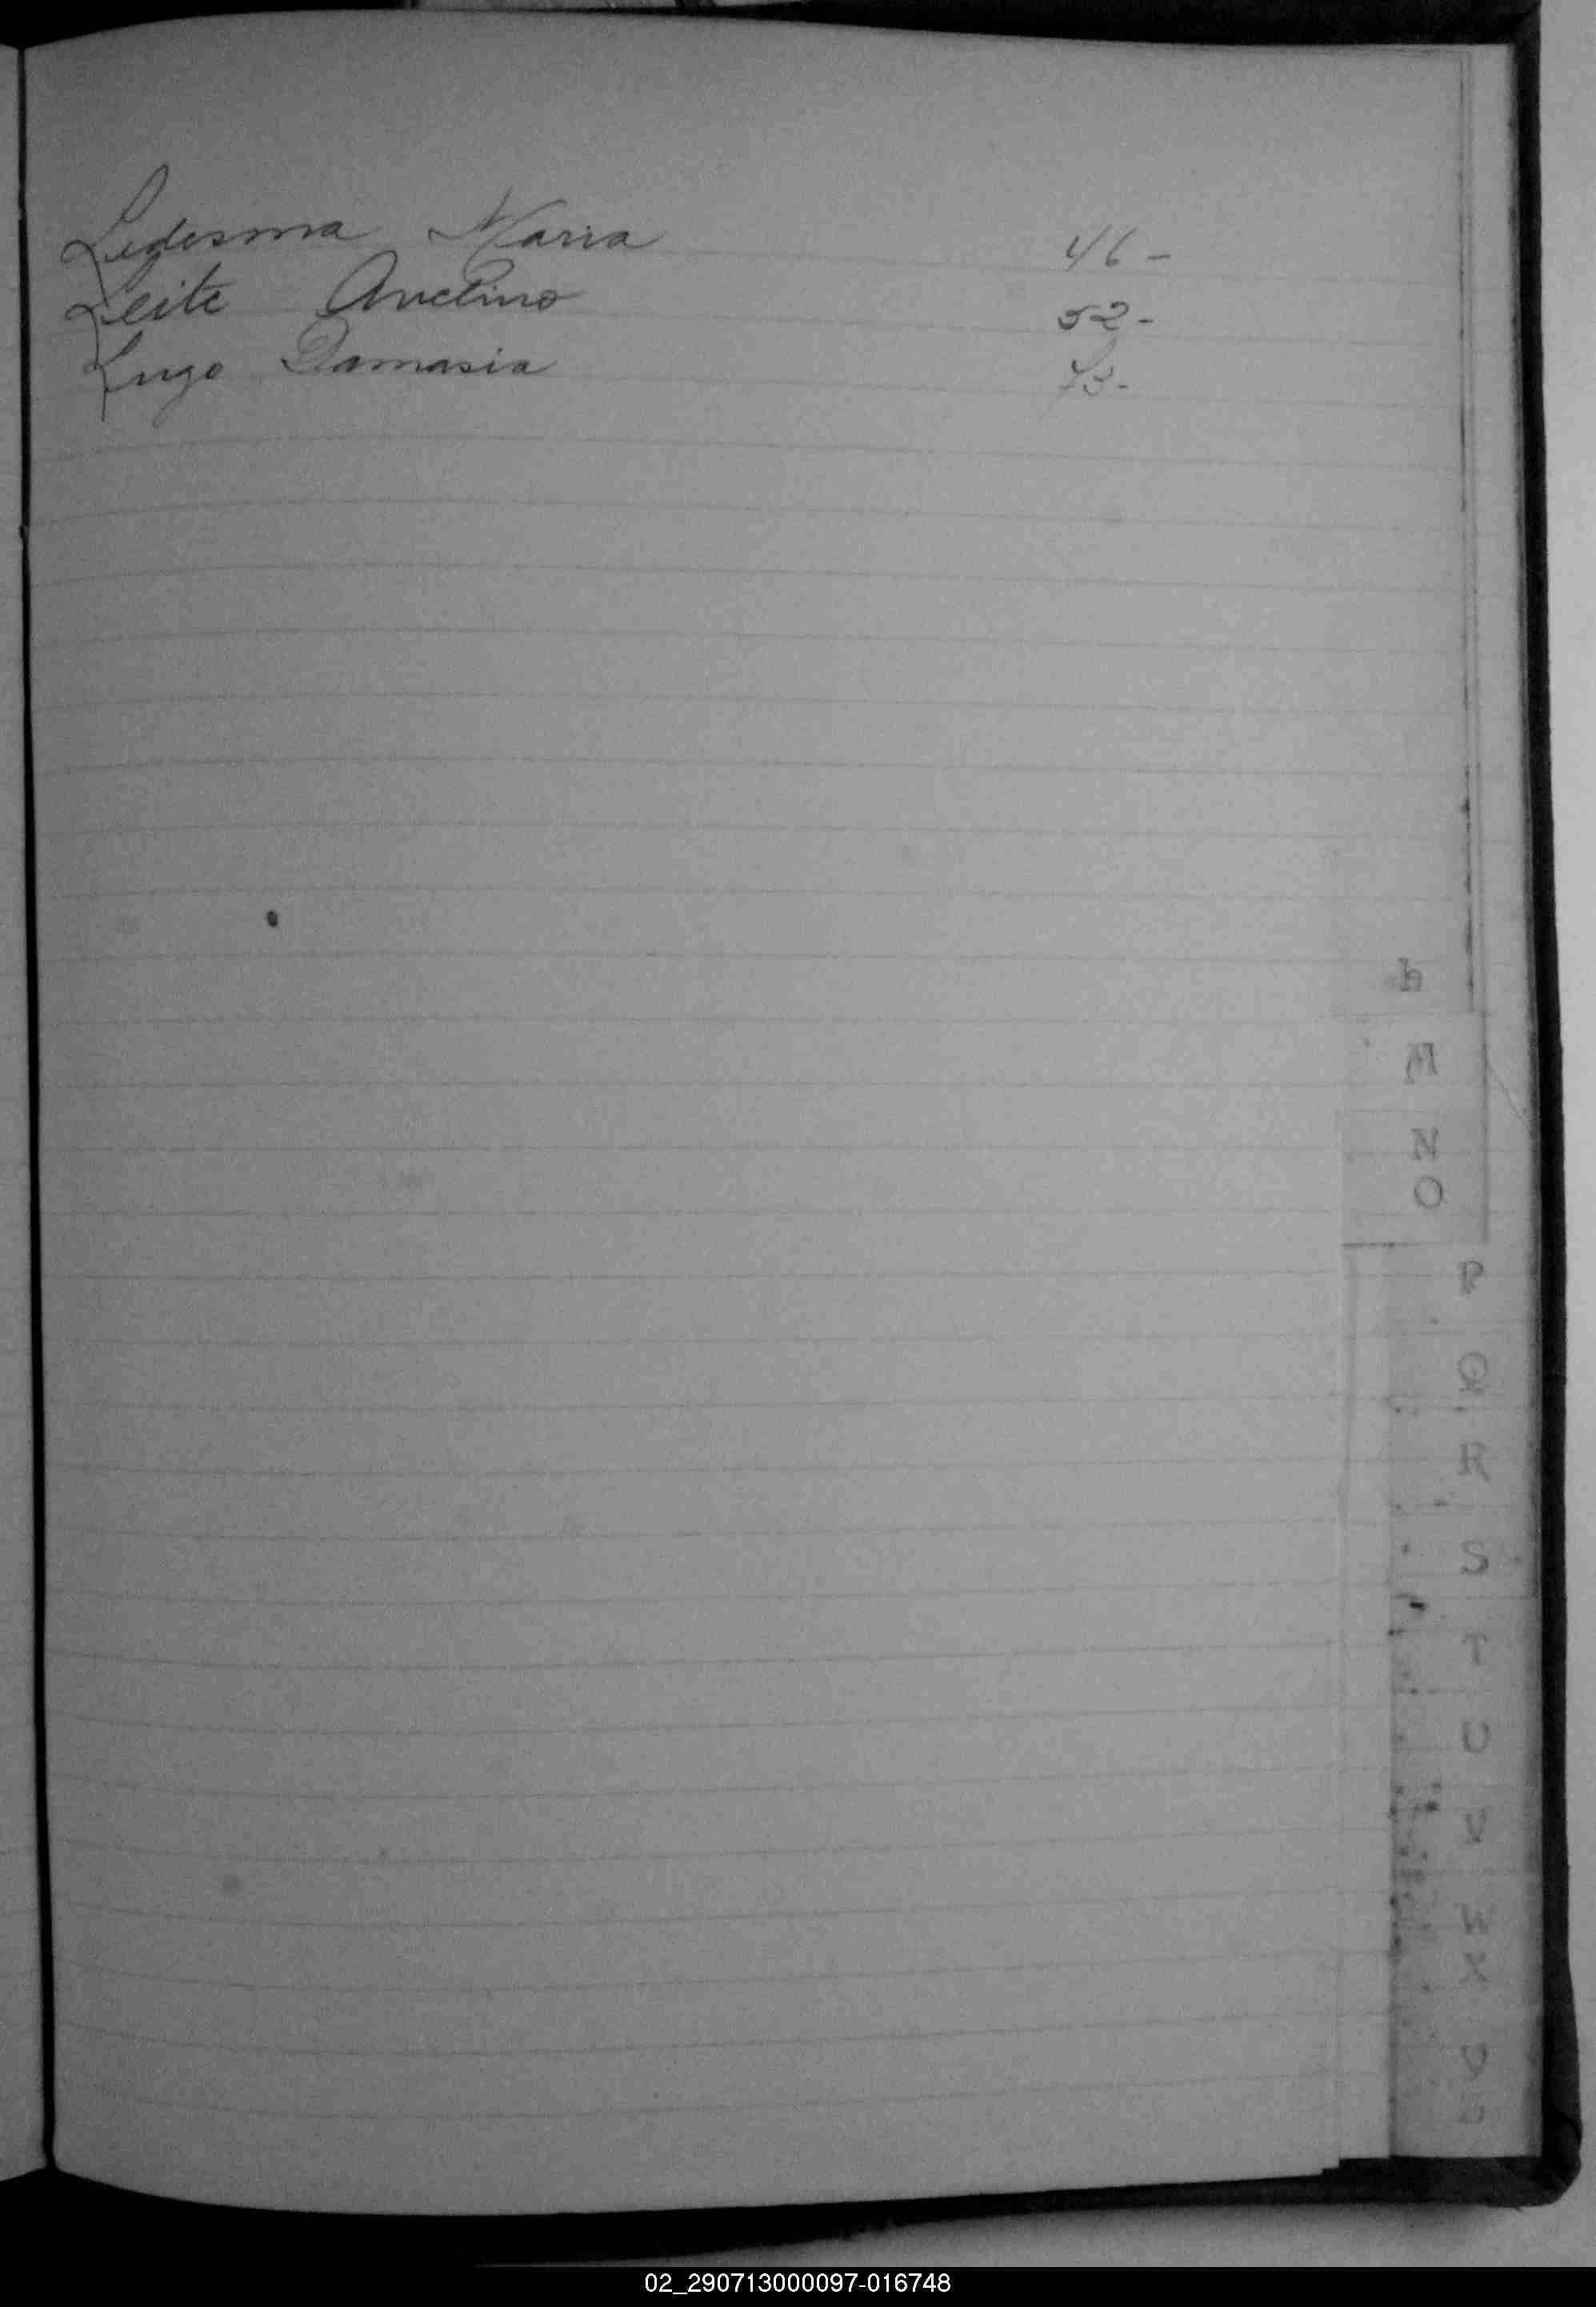 Ledesma Maria 46-
Leite Avelino 52-
Lugo Damasia 73-
h
M
N
O
P
Q
R
S
T
U
V
W
X
02_290713000097-016748